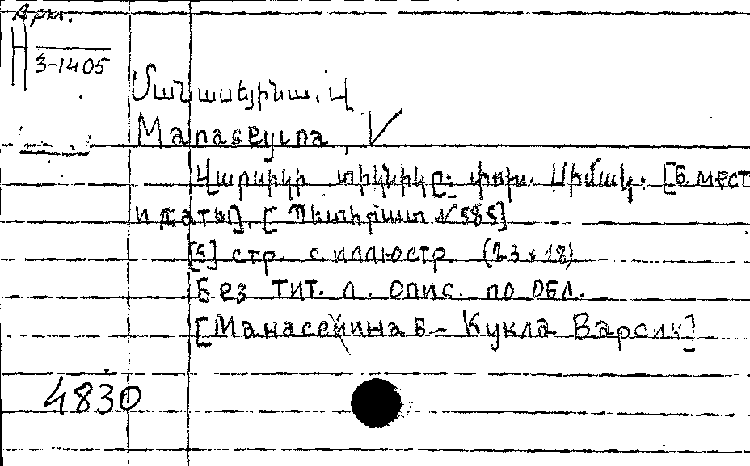 Арм.
H
3-1405
Մանասեյինա, Վ
Manaseyina, V
Վարսիկի տիկնիկը: փոխ. Սիմակ. [Б. мест
и даты]. [Պետհրատ N 585]
[5] стр. с иллюстр. (23 x 18)
Без тит. л. опис. по обл.
[Манасеина В – Кукла Варсик]
4830